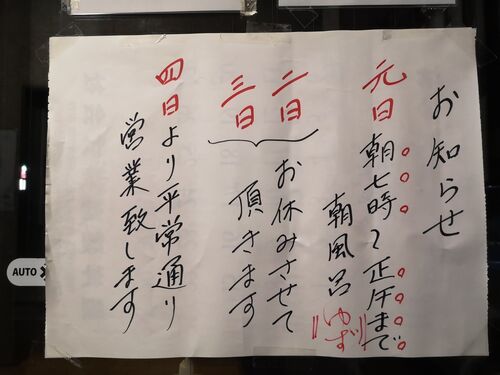 お知らせ
元日朝七時〜正午まで
朝風呂
ゆず
二日
三日
お休みさせて
頂きます
四日より平常通り
営業致します
AUTO